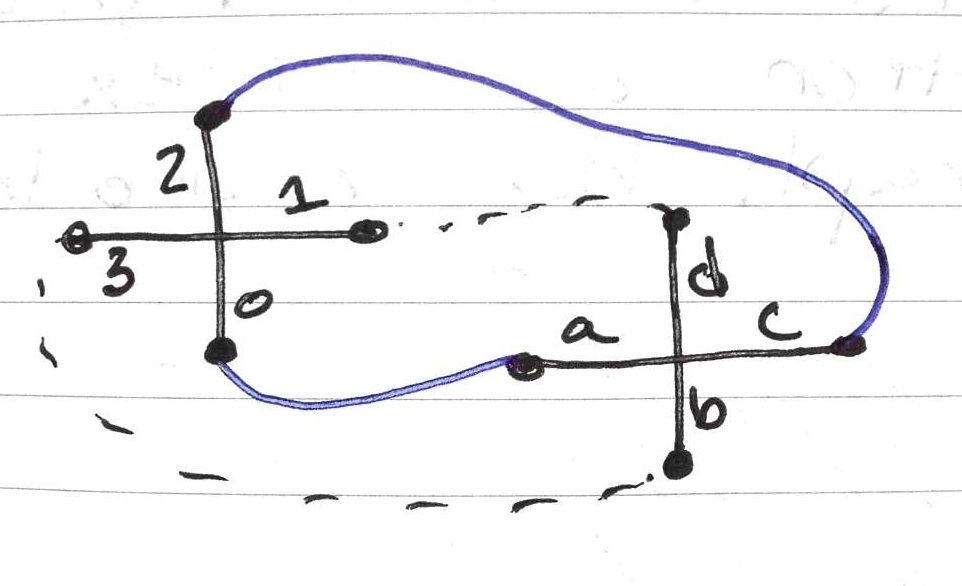 2
1
3
0
d
a
c
b